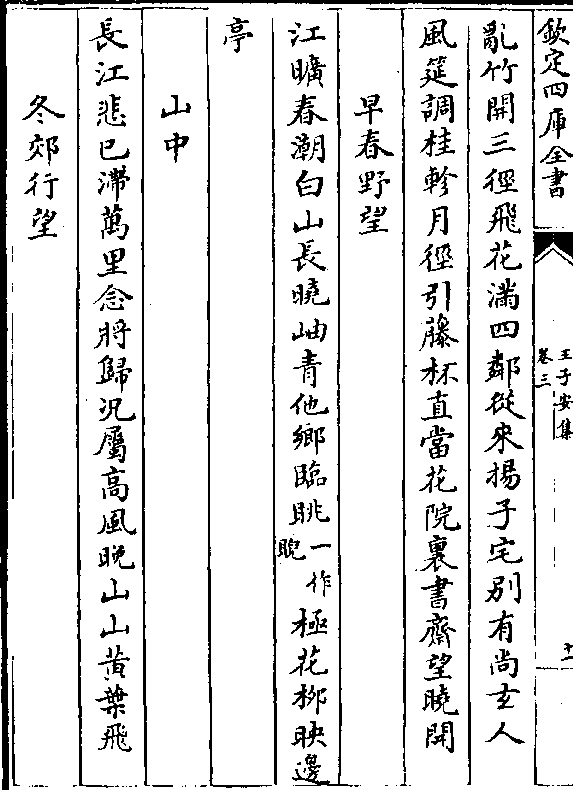 欽定四庫全書
王子安集
卷三
十一
亂竹開三徑飛花滿四鄰從來揚子宅別有尚玄人
風筵調桂軫月徑引藤杯直當花院裏書齋望曉開
早春野望
江曠春潮白山長曉岫青他鄉臨眺一作睨極花柳映邊
亭
山中
長江悲已滯萬里念將歸況屬高風晚山山黃葉飛
冬郊行望